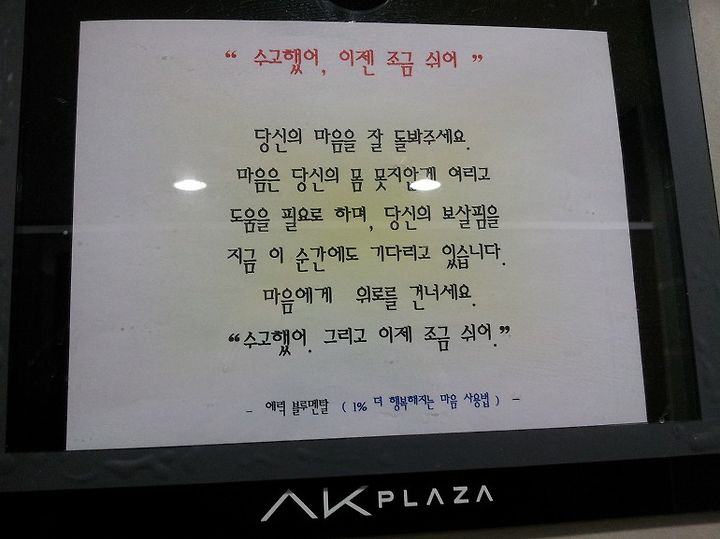 “ 수고했어, 이젠 조금 쉬어 ”
당신의 마음을 잘 돌봐주세요.
마음은 당신의 몸 못지않게 여리고
도움을 필요로 하며, 당신의 보살핌을
지금 이 순간에도 기다리고 있습니다.
마음에게 위로를 건너세요.
“수고했어. 그리고 이제 조금 쉬어.”
- 에릭 블루멘탈 ( 1% 더 행복해지는 마음 사용법 ) -
AK PLAZA